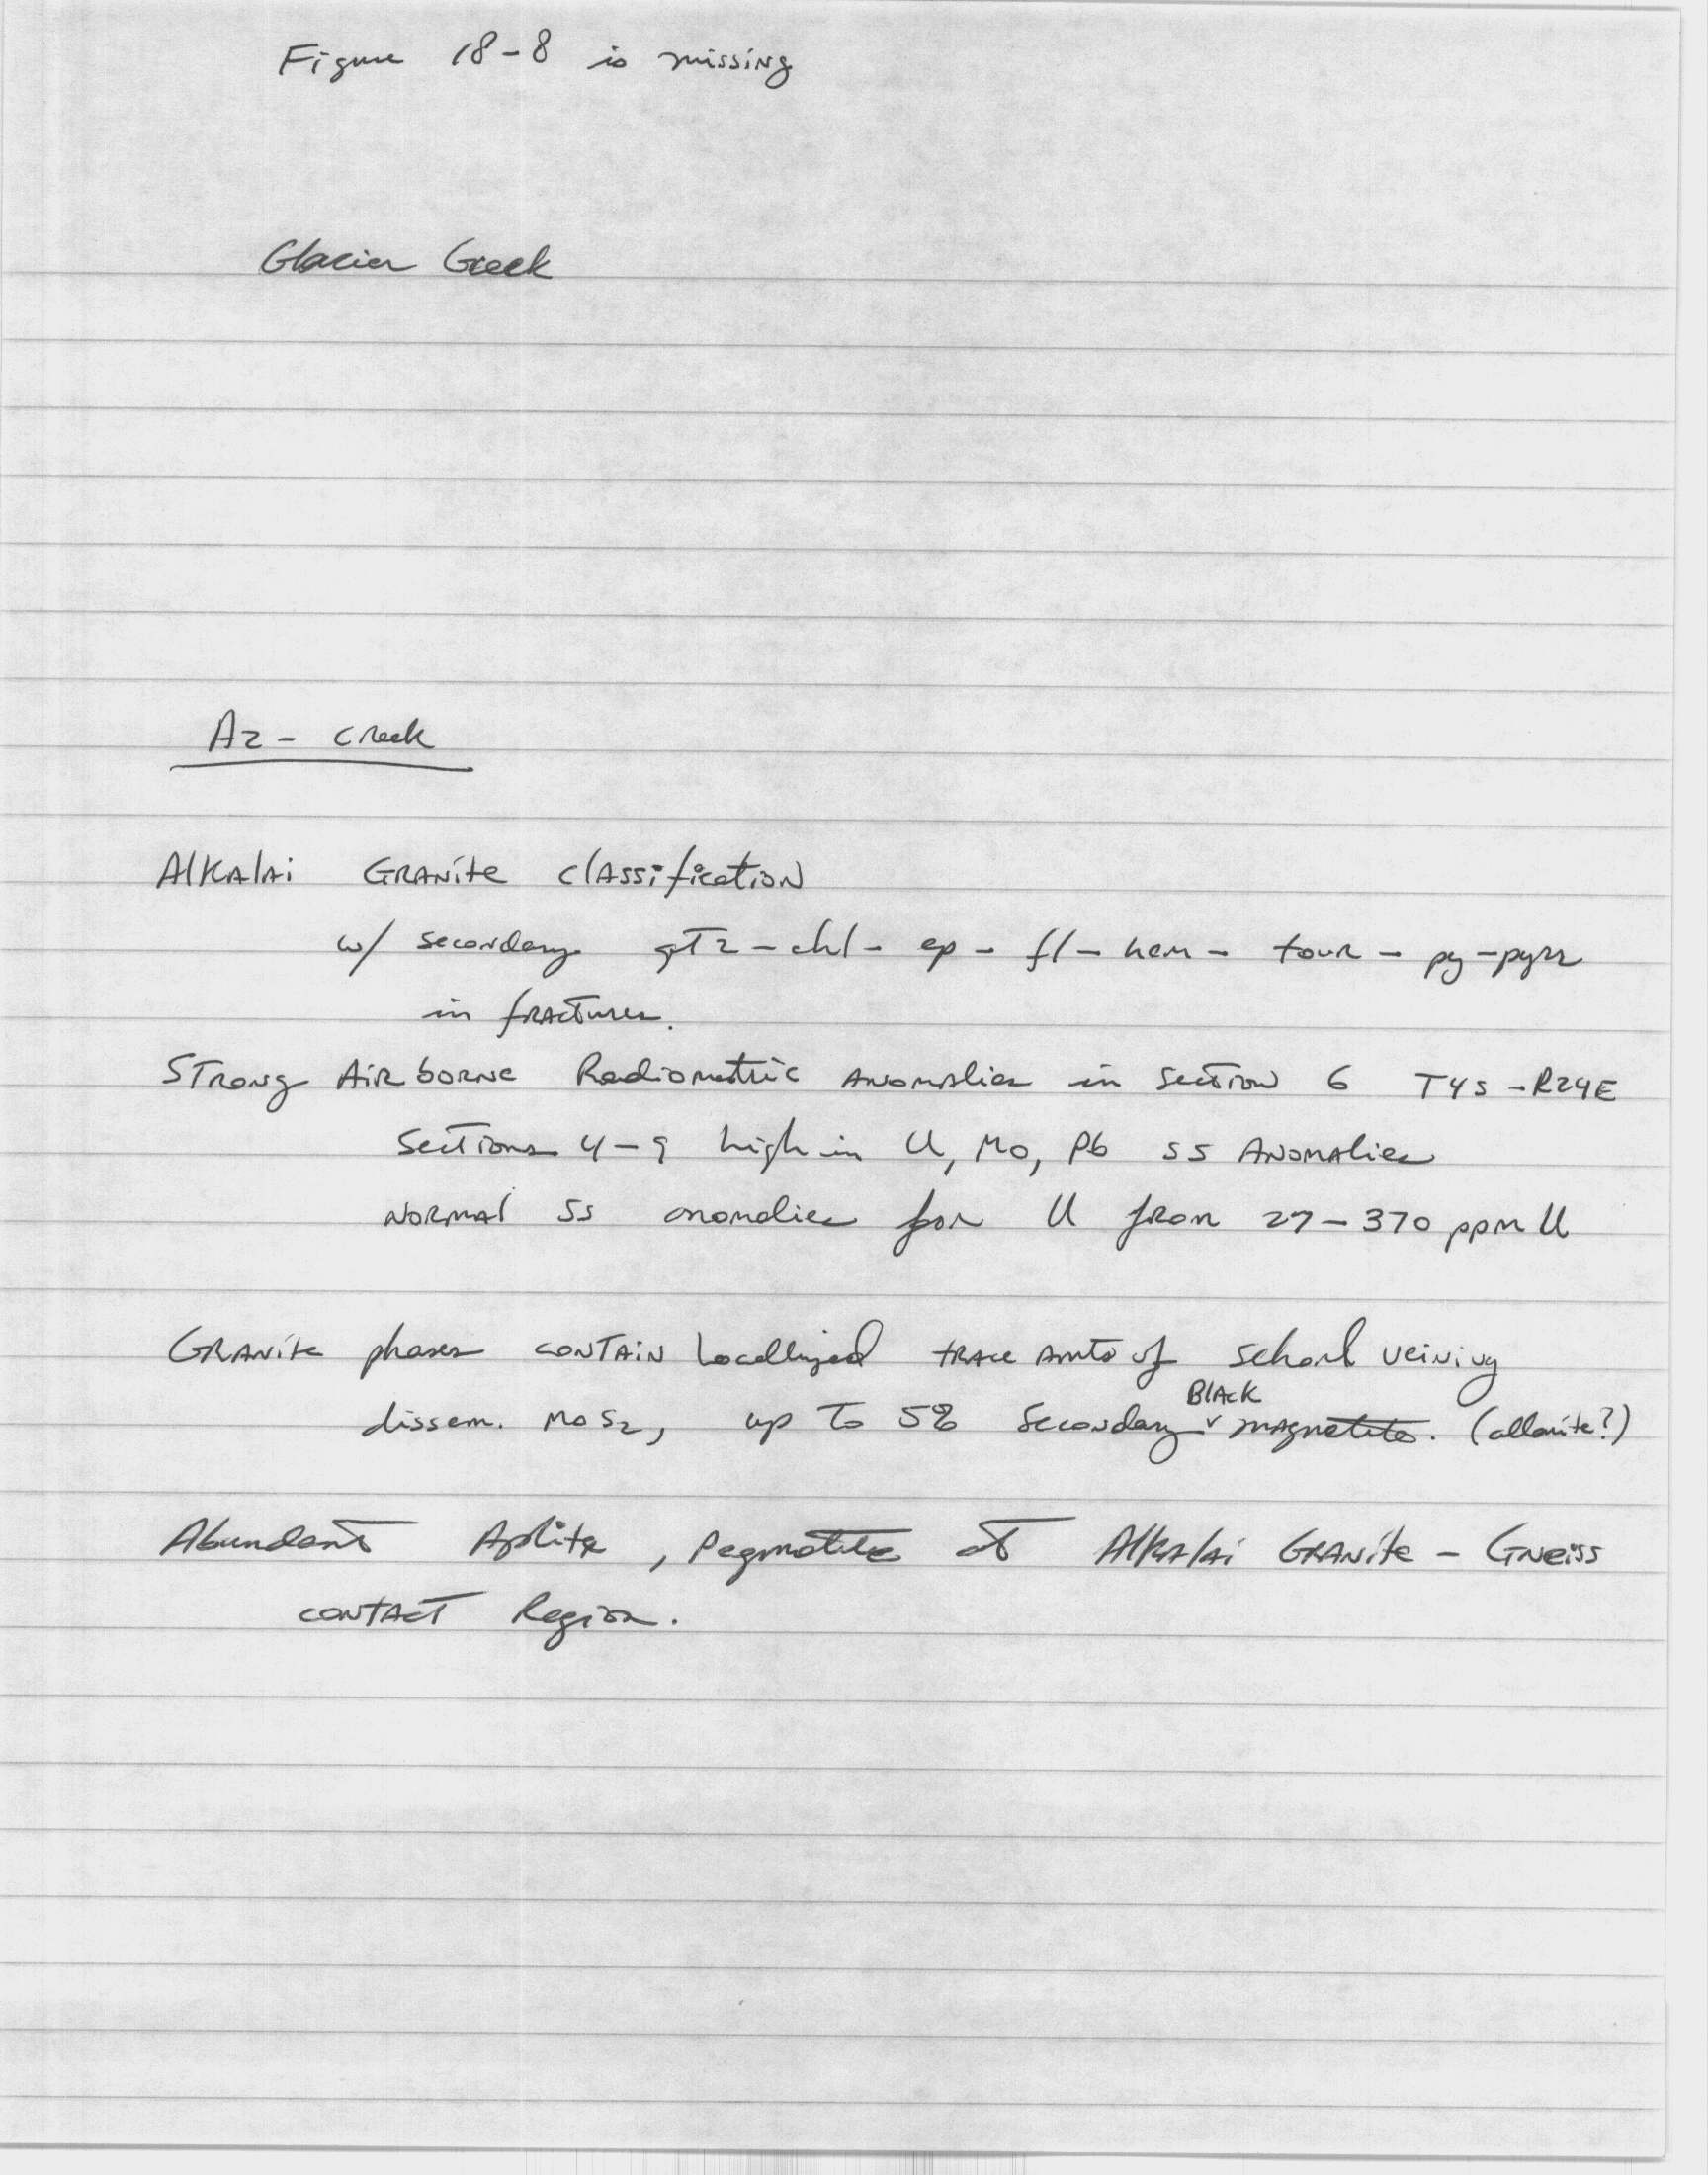 Figure 18-8 is missing
Glacier Creek
Az - Creek
Alkalai Granite Classification
w/ secondary qtz - chl - ep - fl - hem - tour - py - pyrr
in fractures.
Strong Airborne Radiometric anomalies in section 6 T4S - R24E
Sections 4-9 high in U, Mo, Pb SS Anomalies
Normal SS anomalies for U from 27-370 ppm U
Granite phases contain localized trace amts of schorl veining
BLACK
dissem. MoS2, up to 5% Secondary magnetite. (allanite?)
Abundant Aplite, Pegmatite at Alkalai Granite - Gneiss
contact Region.